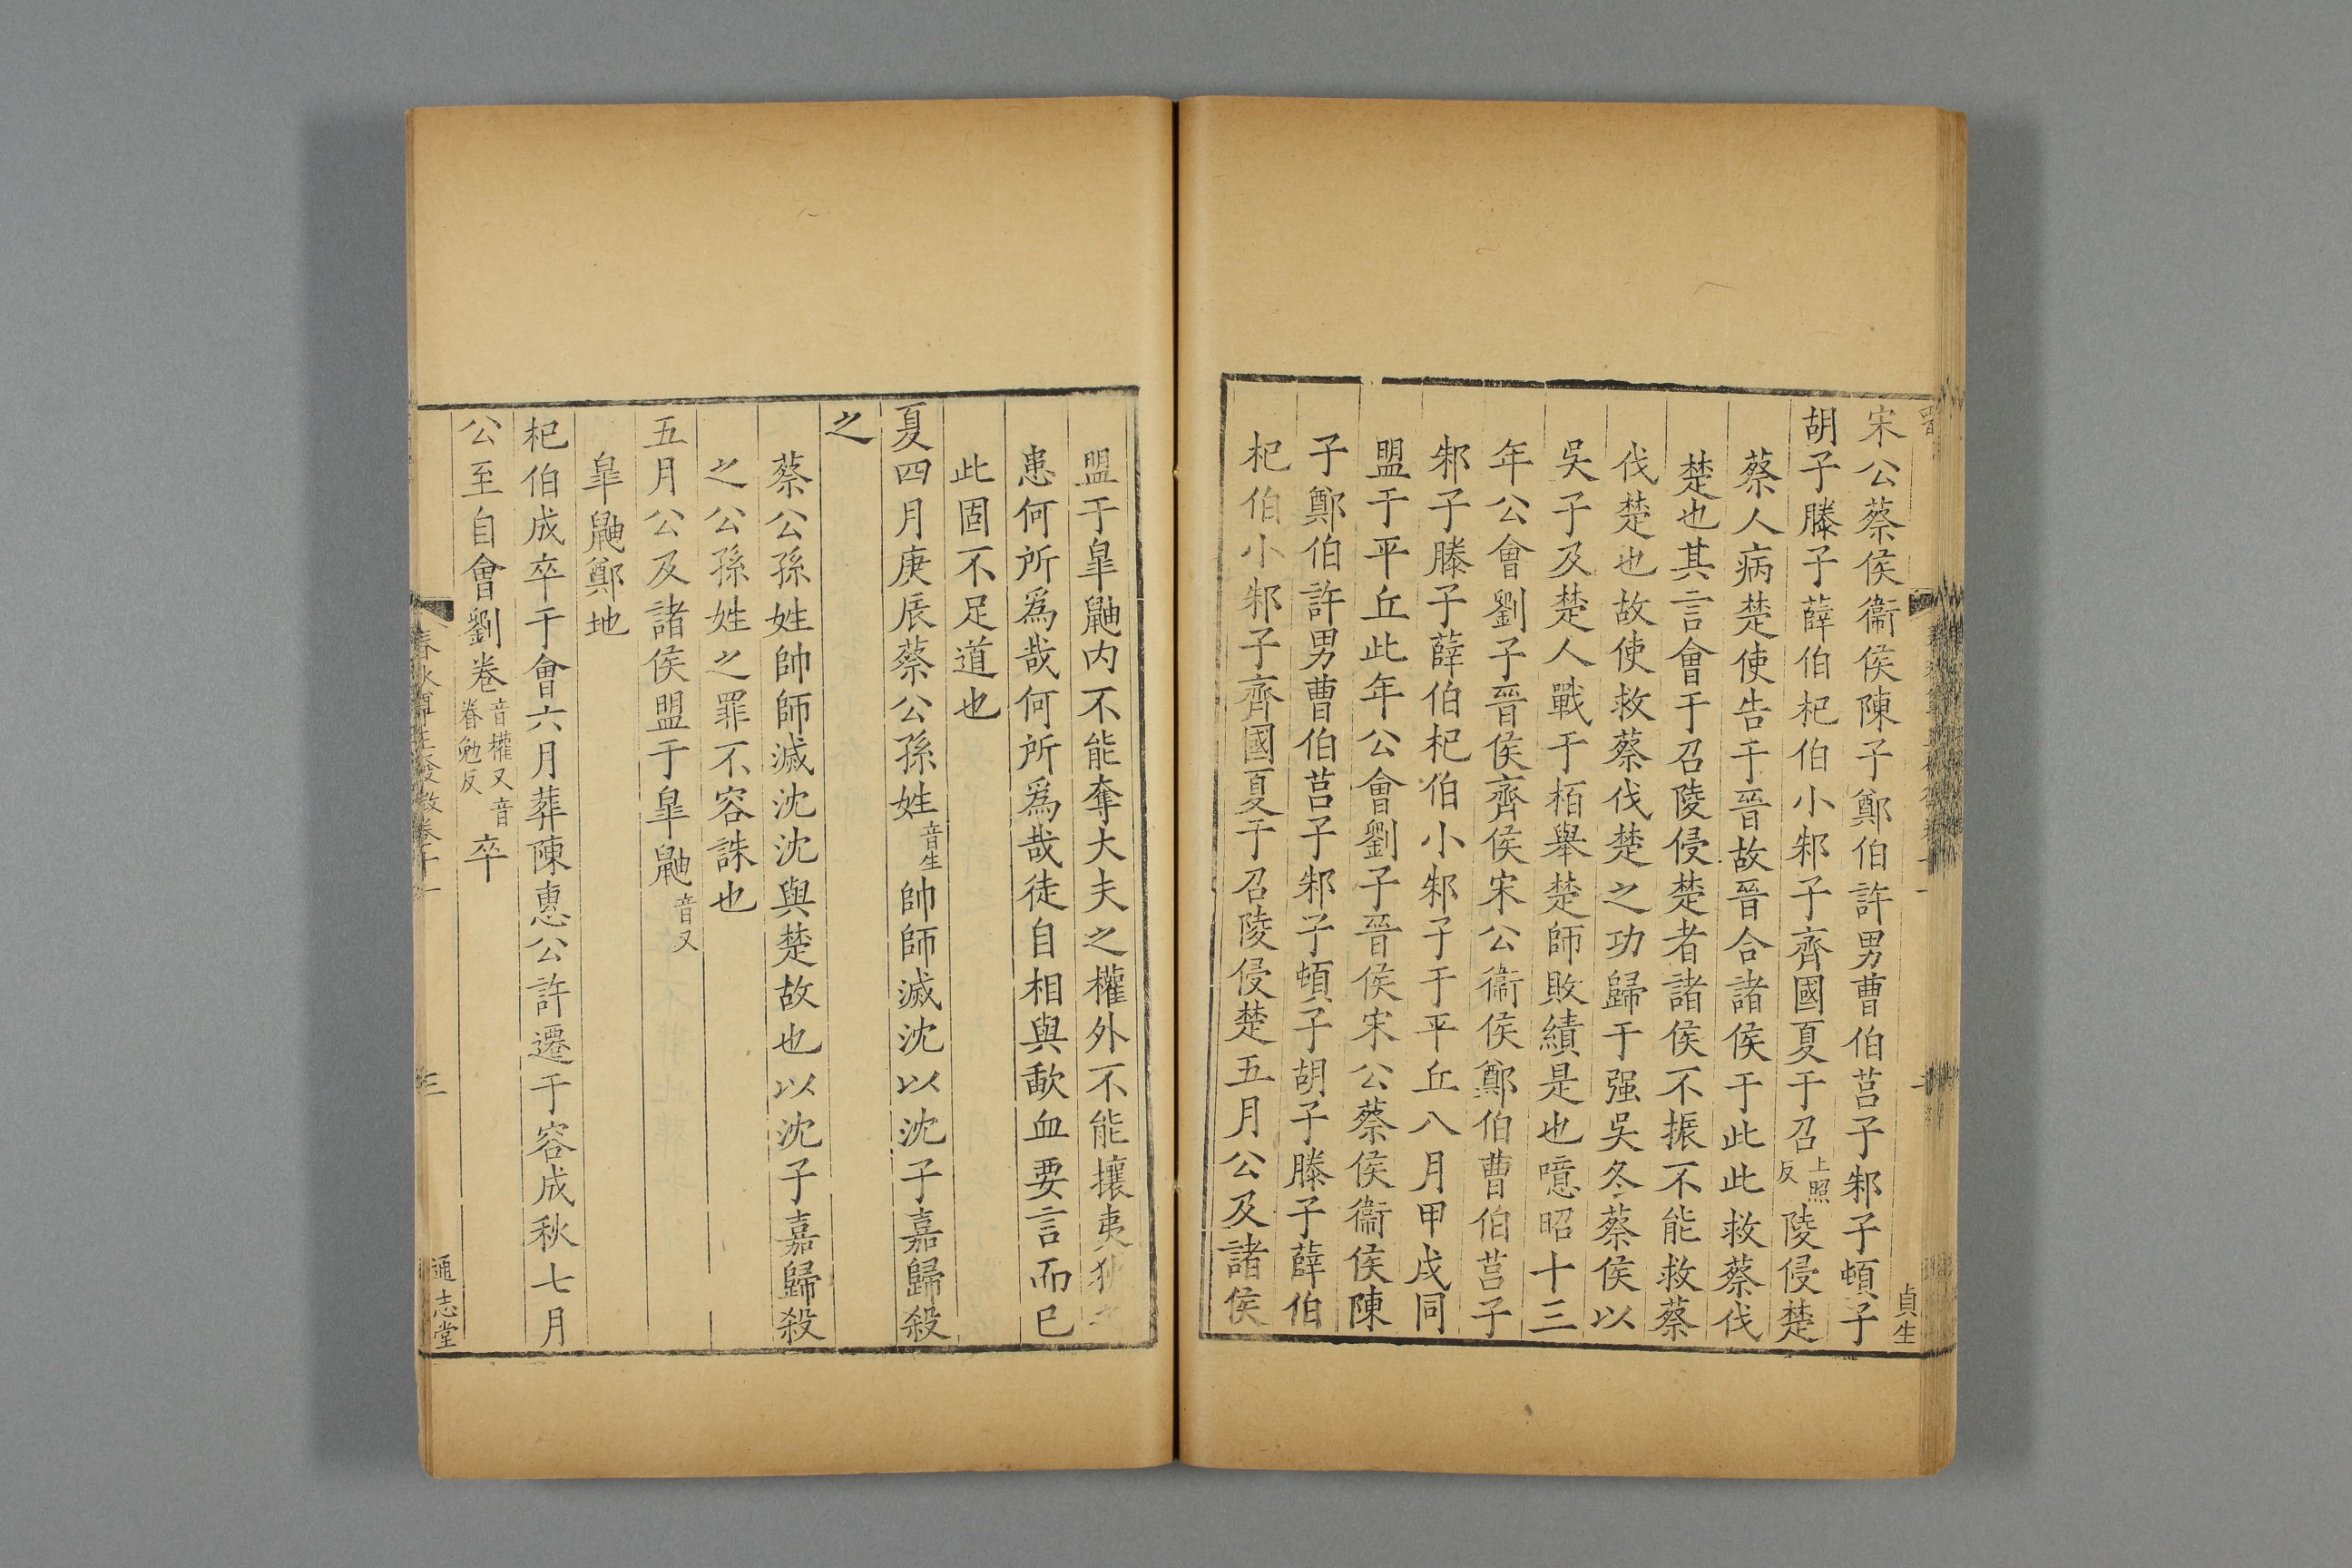 宋公蔡侯衞侯陳子鄭伯許男曹伯莒子邾子頓子
胡子滕子薛伯杞伯小邾子齊國夏于召上照反陵侵楚
蔡人病楚使告于晉故晉合諸侯于此此救蔡伐
楚也其言會于召陵侵楚者諸侯不振不能救蔡
伐楚也故使救蔡伐楚之功歸于强吳冬蔡侯以
吳子及楚人戰于栢舉楚師敗績是也噫昭十三
年公會劉子晉侯齊侯宋公衞侯鄭伯曹伯莒子
邾子滕子薛伯杞伯小邾子于平丘八月甲戌同
盟于平丘此年公會劉子晉侯宋公蔡侯衞侯陳
子鄭伯許男曹伯莒子邾子頓子胡子滕子薛伯
杞伯小邾子齊國夏于召陵侵楚五月公及諸侯
貞生
盟于臯鼬内不能奪大夫之權外不能攘夷狄之
患何所爲哉何所爲哉徒自相與歃血要言而已
此固不足道也
夏四月庚辰蔡公孫姓音生帥師滅沈以沈子嘉歸殺
之
蔡公孫姓帥師滅沈沈與楚故也以沈子嘉歸殺
之公孫姓之罪不容誅也
五月公及諸侯盟于臯鼬音又
臯鼬鄭地
杞伯成卒于會六月葬陳惠公許遷于容成秋七月
公至自會劉卷音權又音眷勉反卒
三
通志堂